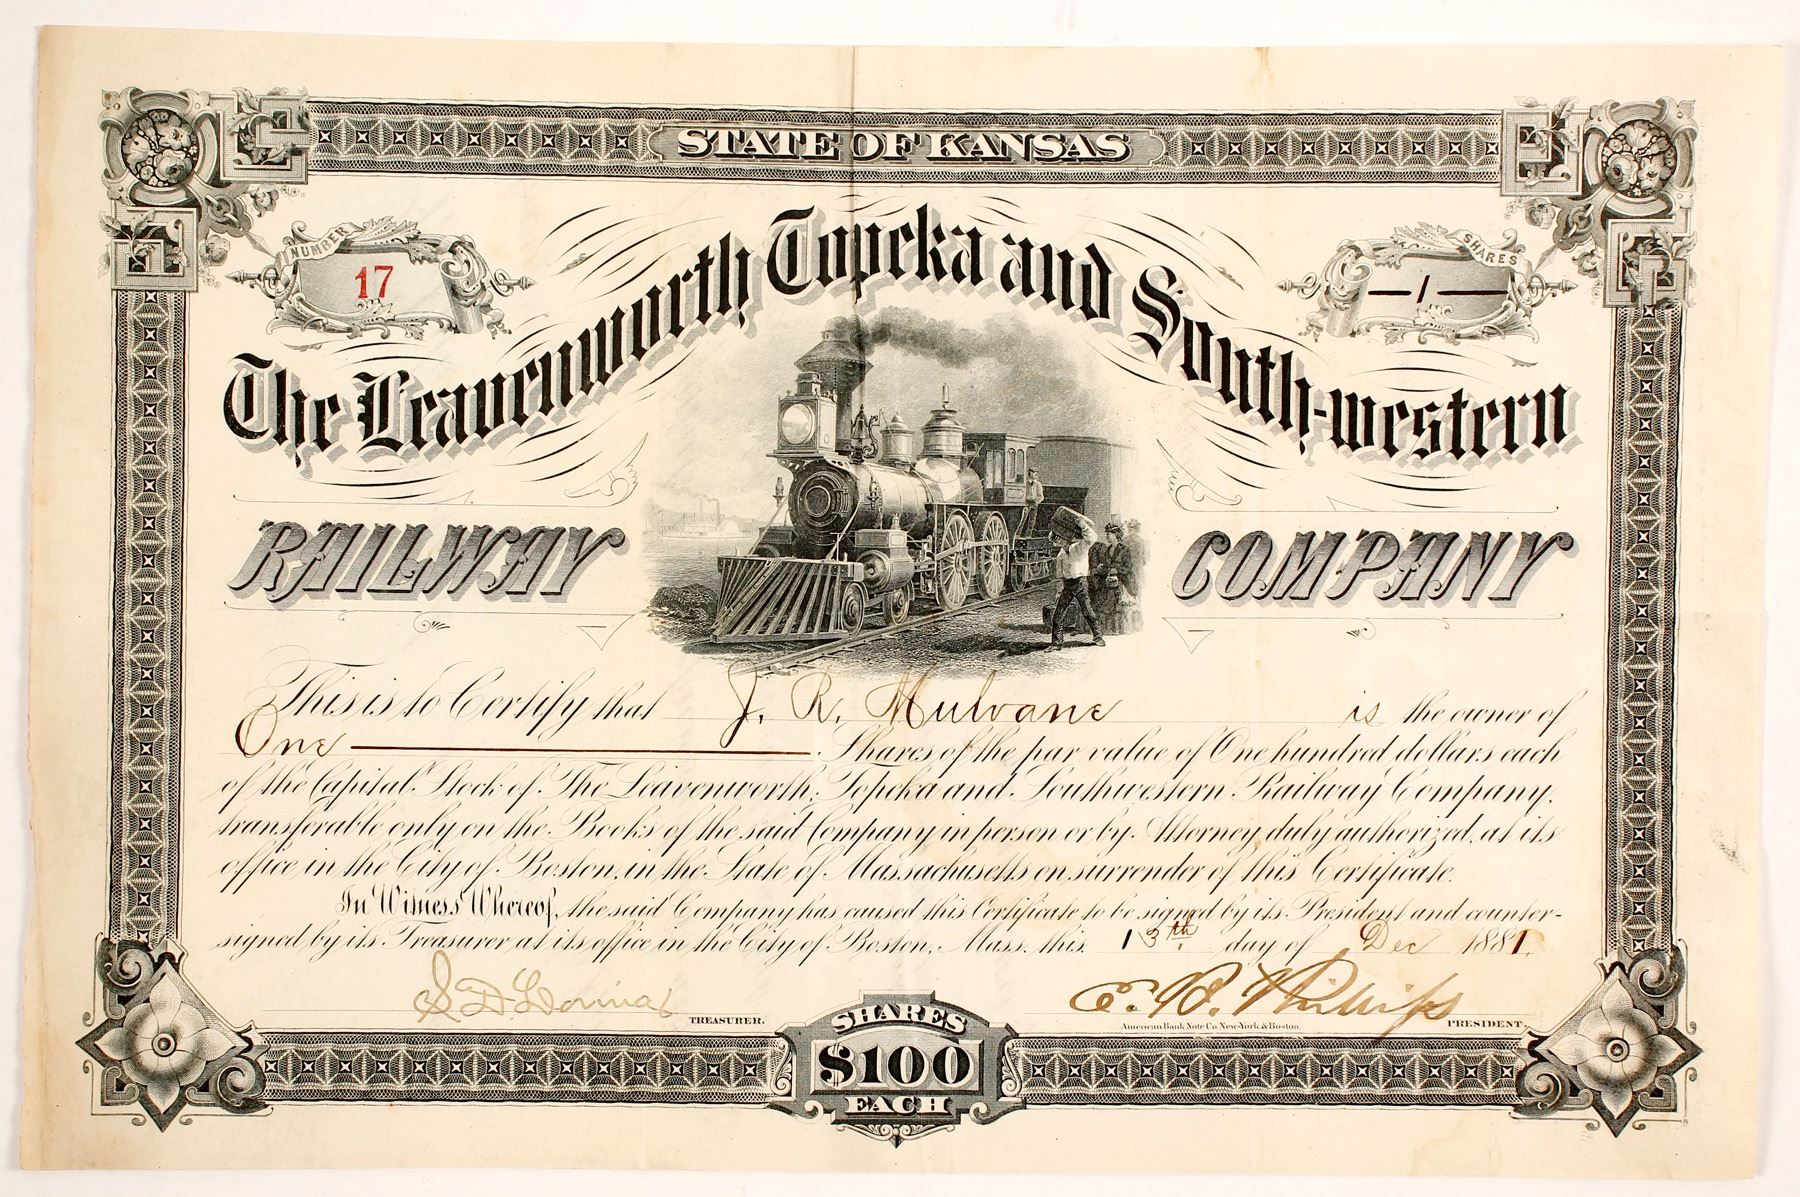 STATE OF KANSAS
NUMBER
17
SHARES
— 1 —
The Leavenworth Topeka and South-western
RAILWAY COMPANY
This is to Certify that J. R. Mulvane is the owner of
One ——— Shares of the par value of One hundred dollars each
of the Capital Stock of The Leavenworth, Topeka and Southwestern Railway Company,
transferable only on the Books of the said Company in person or by Attorney duly authorized, at its
office in the City of Boston, in the State of Massachusetts on surrender of this Certificate.
In Witness Whereof, the said Company has caused this Certificate to be signed by its President and counter-
signed by its Treasurer at its office in the City of Boston, Mass. this 13th day of Dec 1881.
TREASURER.
E. P. Phillips
PRESIDENT.
American Bank Note Co. New-York & Boston.
SHARES
$100
EACH